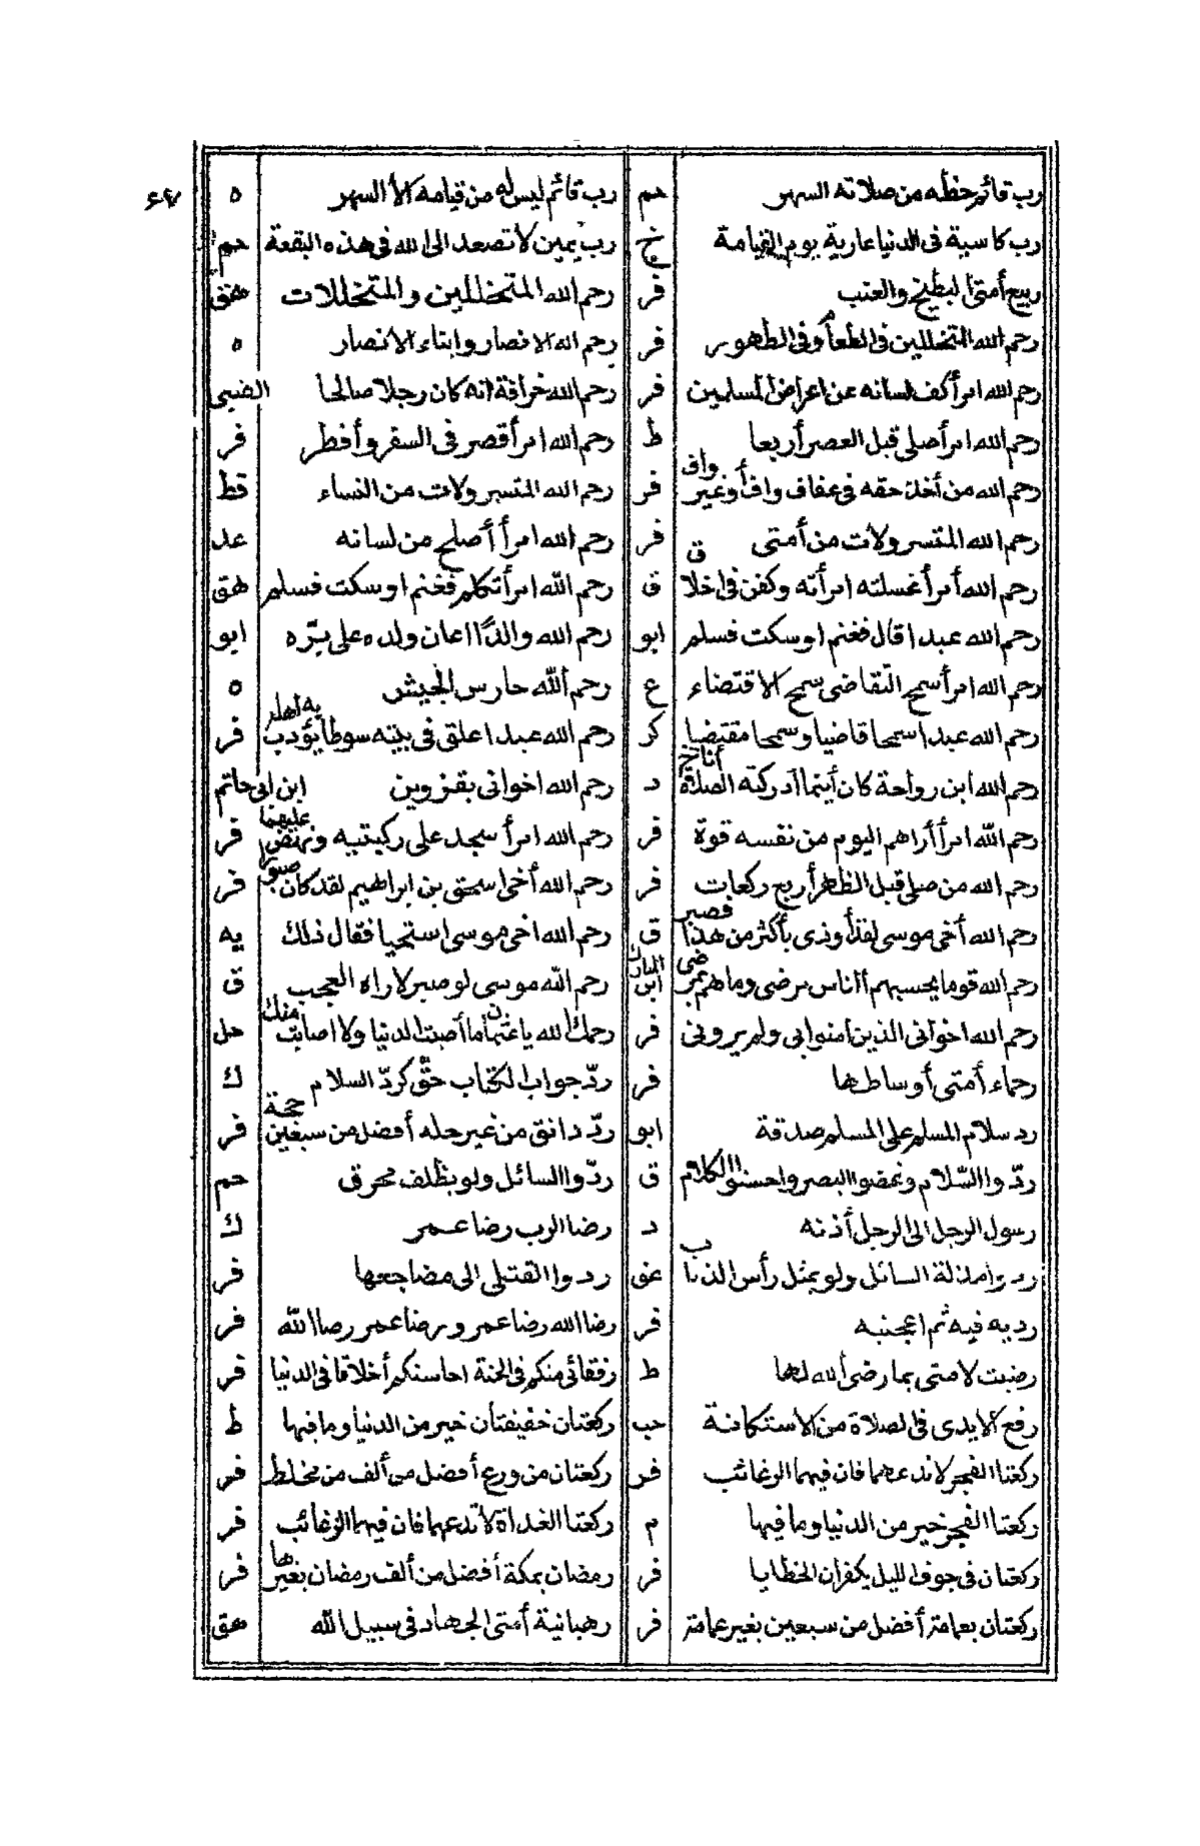 رب قائم حظه من صلاته السهر حم رب قائم ليس له من قيامه الا السهر ه ٤٧
رب كاسية فى الدنيا عارية يوم القيامة خ رب يمين لا تصعد الى الله فى هذه البقعة حم
ربيع أمتى البطيخ والعنب فر رحم الله المتخللين والمتخللات هق
رحم الله المتخللين فى الطعام وفى الطهور فر رحم الله الانصار وابناء الانصار ه
رحم الله امرأ كف لسانه عن اعراض المسلمين فر رحم الله خرافة انه كان رجلا صالحا الضبى
رحم الله امرأ صلى قبل العصر أربعا ط رحم الله امرأ قصر فى السفر وأفطر فر
رحم الله من أخذ حقه فى عفاف واف أو غير واف فر رحم الله المتسرولات من النساء قط
رحم الله المتسرولات من أمتى فر رحم الله امرأ أصلح من لسانه عد
رحم الله أمرأ غسلته امرأته وكفن فى اخلاق ق رحم الله امرأ تكلم فغنم او سكت فسلم هق
رحم الله عبدا قال فغنم او سكت فسلم ابو رحم الله والدًا اعان ولده على برّه ابو
رحم الله امرأ سمح التقاضى سمح الاقتضاء ع رحم الله حارس الجيش ه
رحم الله عبدا سمحا قاضيا وسمحا مقتضيا كر رحم الله عبدا علق فى بيته سوطا يؤدب به اهله فر
رحم الله ابن رواحة كان أينما أدركته الصلاة أناخ د رحم الله اخوانى بقزوين ابن ابى حاتم
رحم الله امرأ أراهم اليوم من نفسه قوة فر رحم الله امرأ سجد على ركبتيه ونهض عليهما فر
رحم الله من صلى قبل الظهر أربع ركعات فر رحم الله أخى اسحق بن ابراهيم لقد كان صبورا فر
رحم الله أخى موسى لقد أوذى بأكثر من هذا فصبر ق رحم الله اخى موسى استحيا فقال ذلك يه
رحم الله قوما يحسبهم الناس مرضى وما هم بمرضى ابن المبارك رحم الله موسى لو صبر لاراه العجب ق
رحم الله اخوانى الذين امنوا بى ولم يرونى فر رحمك الله يا عثمان ما أصبت الدنيا ولا اصابت منك حل
رحماء أمتى أوساطها فر ردّ جواب الكتاب حقّ كردّ السلام ك
رد سلام المسلم على المسلم صدقة ابو ردّ دانق من غير حله أفضل من سبعين حجة فر
ردّوا السّلام وغضوا البصر واحسنوا الكلام ق ردّوا السائل ولو بظلف محرق حم
رسول الرجل الى الرجل أذنه د رضا الرب رضا عمر ك
ردوا مذلة السائل ولو بمثل رأس الذباب عق ردوا القتلى الى مضاجعها فر
رديه فيه ثم اعجنيه فر رضا الله رضا عمر ورضا عمر رضا الله فر
رضيت لامتى بما رضى الله لها ط رفقائى منكم فى الجنة احاسنكم أخلاقا فى الدنيا فر
رفع الايدى فى الصلاة من الاستكانة حب ركعتان خفيفتان خير من الدنيا وما فيها ط
ركعتا الفجر لا تدعهما فان فيهما الرغائب فر ركعتان من ورع أفضل من ألف من مخلط فر
ركعتا الفجر خير من الدنيا وما فيها م ركعتا الغداة لا تدعهما فان فيهما الرغائب فر
ركعتان فى جوف الليل يكفران الخطايا فر رمضان بمكة أفضل من ألف رمضان بغيرها فر
ركعتان بعامة أفضل من سبعين بغير عمامة فر رهبانية أمتى الجهاد فى سبيل الله هق